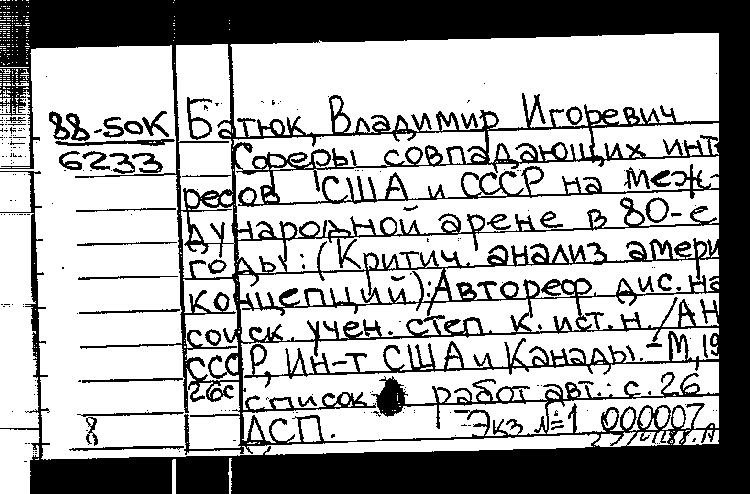 88-50К Батюк, Владимир Игоревич
6233 Сферы совпадающих инте
ресов США и СССР на меж-
дународной арене в 80-е
годы: (Критич. анализ амери
концепций): Автореф. дис. на
соиск. учен. степ. к. ист. н. /АН
СССР, Ин-т США и Канады. - М, 19
26с список работ авт.: с. 26
8 ДСП. Экз №1 000007